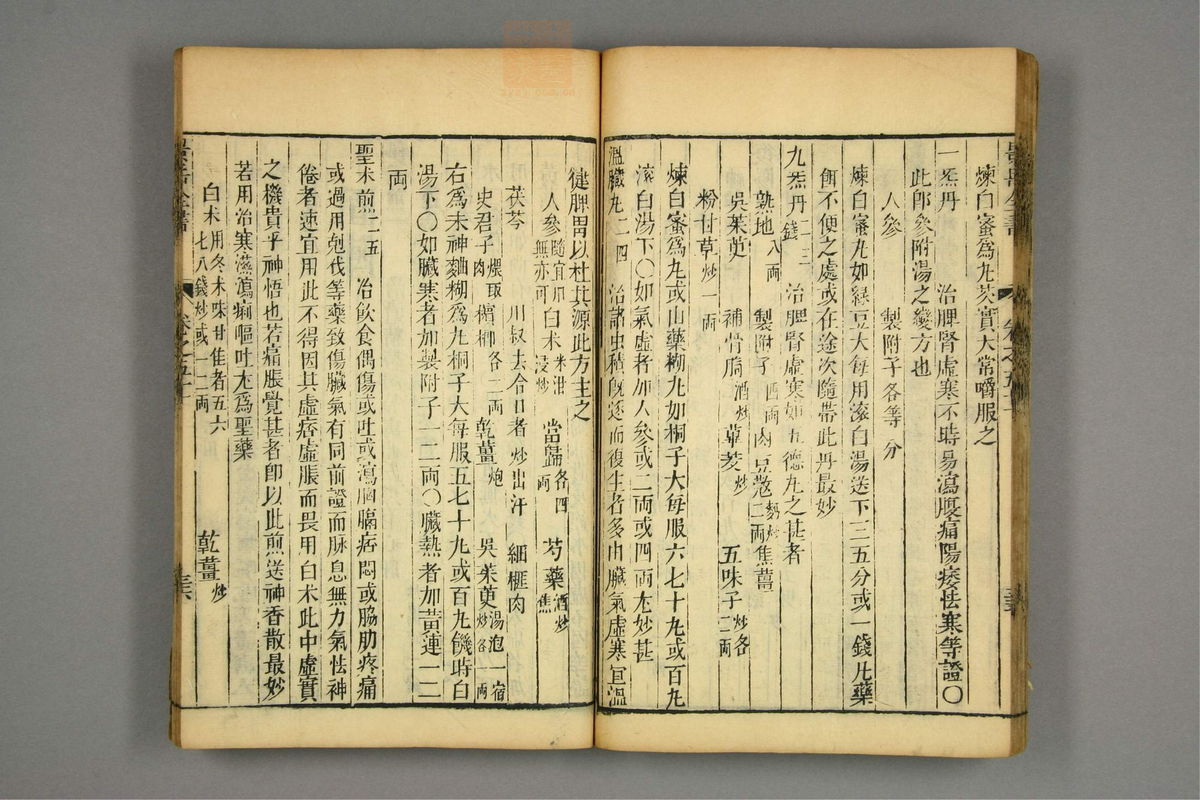 煉白蜜為丸芡實大常嚼服之
一炁丹 治脾腎虛寒不時易瀉腹痛陽痿怯寒等證〇
此即參附湯之變方也
人參 製附子各等分
煉白蜜丸如綠豆大每用滾白湯送下三五分或一錢凡藥
餌不便之處或在途次隨帶此丹最妙
九炁丹二三 治脾腎虛寒如五德丸之甚者
熟地八兩 製附子四兩 肉豆蔻二兩麫炒 焦薑
吳茱萸 補骨脂酒炒 蓽茇炒 五味子炒各二兩
粉甘草炒一兩
煉白蜜為丸或山藥糊丸如桐子大每服六七十丸或百丸
滾白湯下〇如氣虛者加人參或二兩或四兩尤妙甚
溫臟丸二四 治諸虫積既逐而復生者多由臟氣虛寒宜溫
健脾胃以杜其源此方主之
人參隨宜用無亦可 白朮米泔浸炒 當歸各四兩 芍藥酒炒焦
茯苓 川椒去合口者炒出汗 細榧肉
史君子煨取肉 檳榔各二兩 乾薑炮 吳茱萸湯泡一宿炒各一兩
右為末神麯糊為丸桐子大每服五七十丸或百丸饑時白
湯下〇如臟寒者加製附子一二兩〇臟熱者加黃連一二
兩
聖朮煎二五 治飲食偶傷或吐或瀉胸膈痞悶或脇肋疼痛
或過用剋伐等藥致傷臟氣有同前證而脉息無力氣怯神
倦者速宜用此不得因其虛痞虛脹而畏用白朮此中虛實
之機貴乎神悟也若痛脹覺甚者即以此煎送神香散最妙
若用治寒濕瀉痢嘔吐尤為聖藥
白朮用冬朮味甘佳者五六七八錢炒或一二兩 乾薑炒
景岳全書